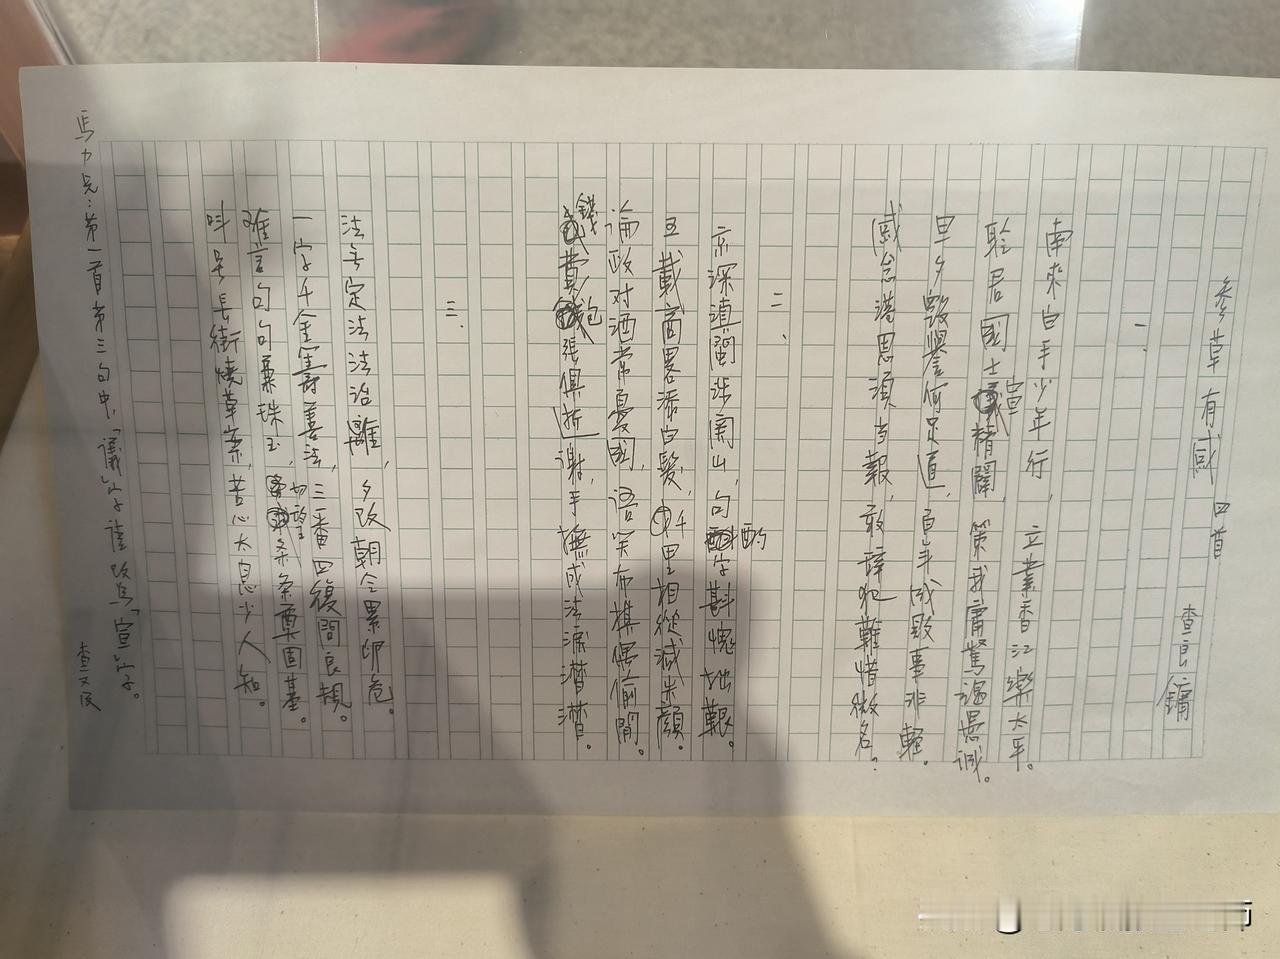 參草有感 四首
查良鏞
一、
南來白手少年行,立業香江樂太平。
聆君國士宣精闢,策我庸駑竭愚誠。
旦夕毀譽何足道,百年成敗事非輕。
感懷港恩須当報,敢辭犯難惜微名。
二、
京深滇閩涉関山,句酌字斟愧拙艱。
五載商畧添白髮,千里相從減朱顏。
論政对酒常憂國,語笑布棋偶偷閒。
錢費包張俱折謝,手撫成法淚潸潸。
三、
法無定法法治離,夕改朝令累卵危。
一字千金籌善法,三番四復問良規。
难言句句兼珠玉,切望条条奠固基。
叫号長街燒草案,苦心太息少人知。
馬力兄:第一首第三句中,「議」字請改為「宣」字。
查良